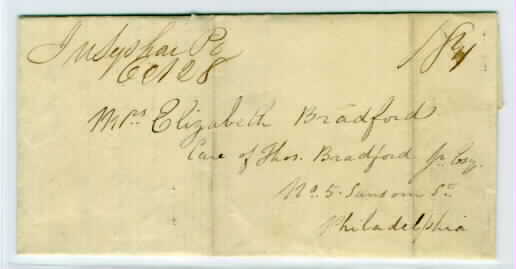 Pa
Oct 28
18¾
Mrs Elizabeth Bradford
Care of Thos. Bradford Jr. Esq.
No. 5 Sansom St
Philadelphia